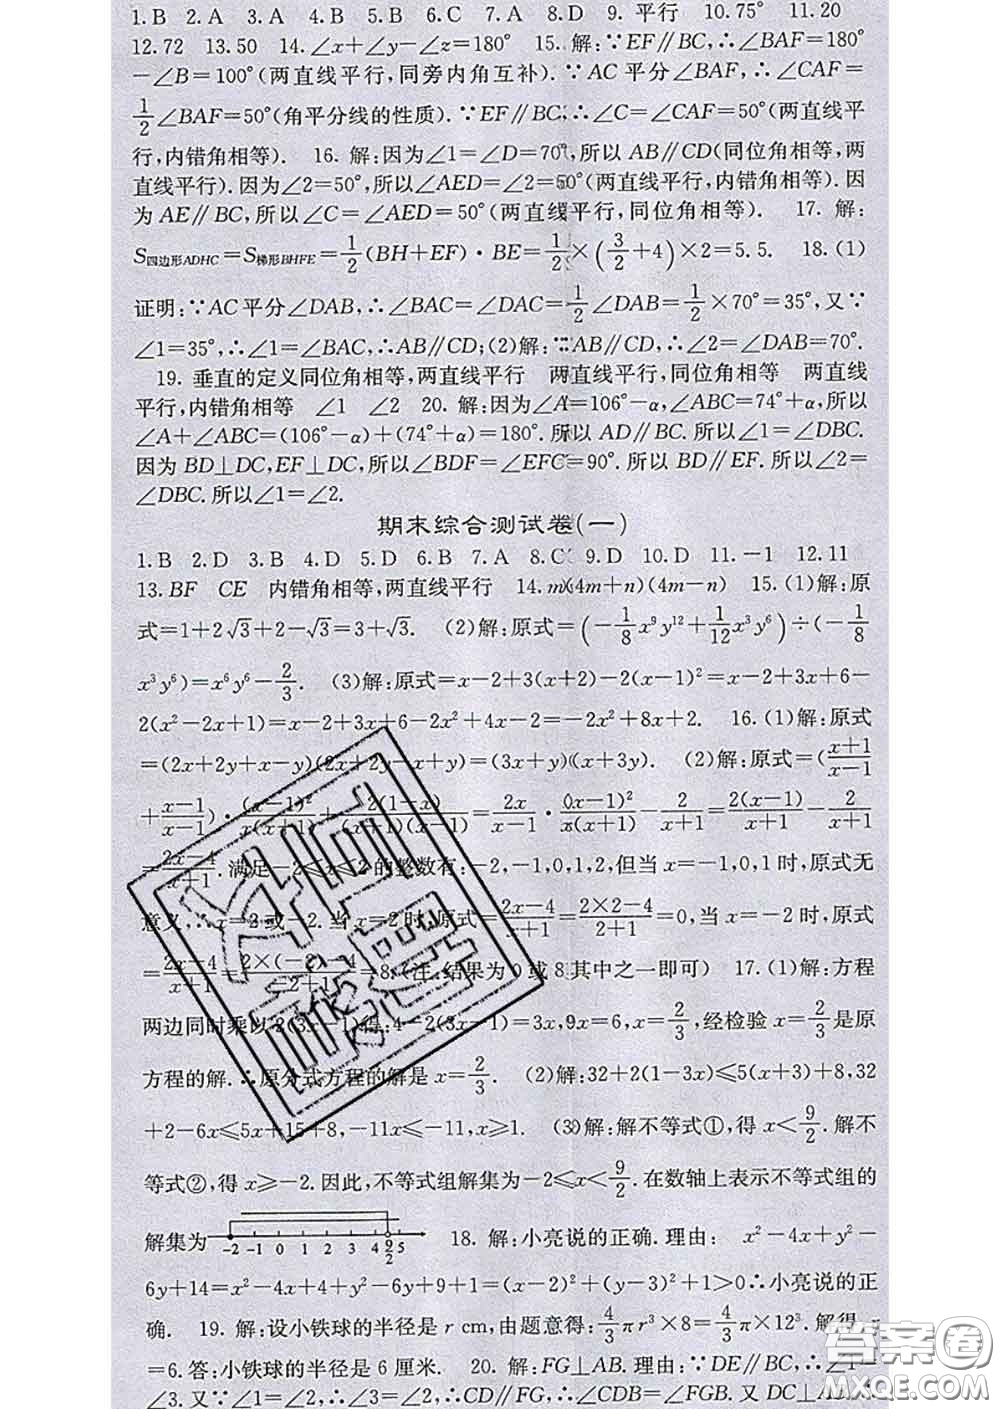 1.B 2.A 3.A 4.B 5.B 6.C 7.A 8.D 9.平行 10.75° 11.20
12.72 13.50 14.∠x+∠y-∠z=180° 15.解:∵EF∥BC,∴∠BAF=180°
-∠B=100°(两直线平行,同旁内角互补).∵AC平分∠BAF,∴∠CAF=
1/2∠BAF=50°(角平分线的性质).∵EF∥BC,∴∠C=∠CAF=50°(两直线平
行,内错角相等). 16.解:因为∠1=∠D=70°,所以AB∥CD(同位角相等,两
直线平行).因为∠2=50°,所以∠AED=∠2=50°(两直线平行,内错角相等).因
为AE∥BC,所以∠C=∠AED=50°(两直线平行,同位角相等). 17.解:
S四边形ADHC=S梯形BHFE=1/2(BH+EF)·BE=1/2×(3/2+4)×2=5.5. 18.(1)
证明:∵AC平分∠DAB,∴∠BAC=∠DAC=1/2∠DAB=1/2×70°=35°,又∵
∠1=35°,∴∠1=∠BAC,∴AB∥CD;(2)解:∵AB∥CD,∴∠2=∠DAB=70°.
19.垂直的定义同位角相等,两直线平行 两直线平行,同位角相等 两直线
平行,内错角相等 ∠1 ∠2 20.解:因为∠A=106°-α,∠ABC=74°+α,所以
∠A+∠ABC=(106°-α)+(74°+α)=180°.所以AD∥BC.所以∠1=∠DBC.
因为BD⊥DC,EF⊥DC,所以∠BDF=∠EFC=90°.所以BD∥EF.所以∠2=
∠DBC.所以∠1=∠2.
期末综合测试卷(一)
1.B 2.D 3.B 4.D 5.D 6.B 7.A 8.C 9.D 10.D 11.-1 12.11
13.BF CE 内错角相等,两直线平行 14.m(4m+n)(4m-n) 15.(1)解:原
式=1+2√3+2-√3=3+√3. (2)解:原式=(-1/8x⁹y¹²+1/12x³y⁶)÷(-1/8
x³y⁶)=x⁶y⁶-2/3. (3)解:原式=x-2+3(x+2)-2(x-1)²=x-2+3x+6-
2(x²-2x+1)=x-2+3x+6-2x²+4x-2=-2x²+8x+2. 16.(1)解:原式
=(2x+2y+x-y)(2x+2y-x+y)=(3x+y)(x+3y). (2)解:原式=(x+1/x-1
+x-1/x-1)·(x-1)²/x(x+1)+2(1-x)/(x+1)(x-1)=2x/x-1·(x-1)²/x(x+1)-2/x+1=2(x-1)/x+1-2/x+1
=2x-4/x+1.满足-2≤x≤2的整数有:-2,-1,0,1,2,但当x=-1,0,1时,原式无
意义,∴x=2或-2.当x=2时,原式=2x-4/x+1=2×2-4/2+1=0,当x=-2时,原式
=2x-4/x+1=2×(-2)-4/-2+1=8.(注:结果为0或8其中之一即可) 17.(1)解:方程
两边同时乘以2(3x-1)得:4-2(3x-1)=3x,9x=6,x=2/3,经检验x=2/3是原
方程的解.∴原分式方程的解是x=2/3. (2)解:32+2(1-3x)≤5(x+3)+8,32
+2-6x≤5x+15+8,-11x≤-11,x≥1. (3)解:解不等式①,得x<9/2.解不
等式②,得x≥-2.因此,不等式组解集为-2≤x<9/2.在数轴上表示不等式组的
解集为 -2 -1 0 1 2 3 4 9/2 5 18.解:小亮说的正确.理由: x²-4x+y²-
6y+14=x²-4x+4+y²-6y+9+1=(x-2)²+(y-3)²+1>0∴小亮说的正
确. 19.解:设小铁球的半径是r cm,由题意得:4/3πr³×8=4/3π×12³.解得r
=6.答:小铁球的半径是6厘米. 20.解:FG⊥AB.理由:∵DE∥BC,∴∠1=
∠3.又∵∠1=∠2,∴∠3=∠2,∴CD∥FG,∴∠CDB=∠FGB.又DC⊥AB,
答案圈
MXQE.COM